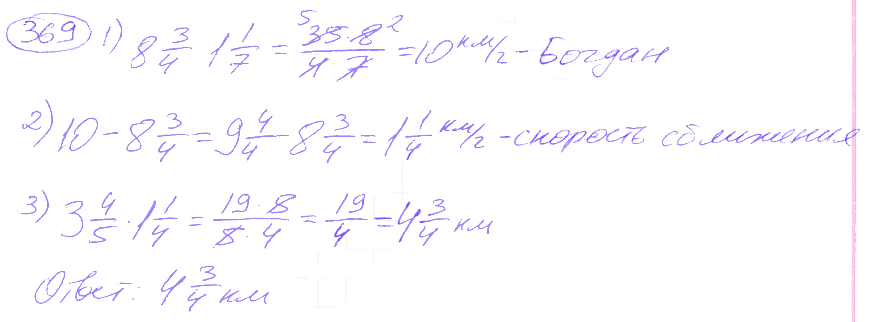 369 1) 8 3/4 · 1 1/7 = 35·8/4·7 = 10 км/ч - Богдан
2) 10 - 8 3/4 = 9 4/4 - 8 3/4 = 1 1/4 км/ч - скорость сближения
3) 3 4/5 · 1 1/4 = 19·5/5·4 = 19/4 = 4 3/4 км
Ответ: 4 3/4 км